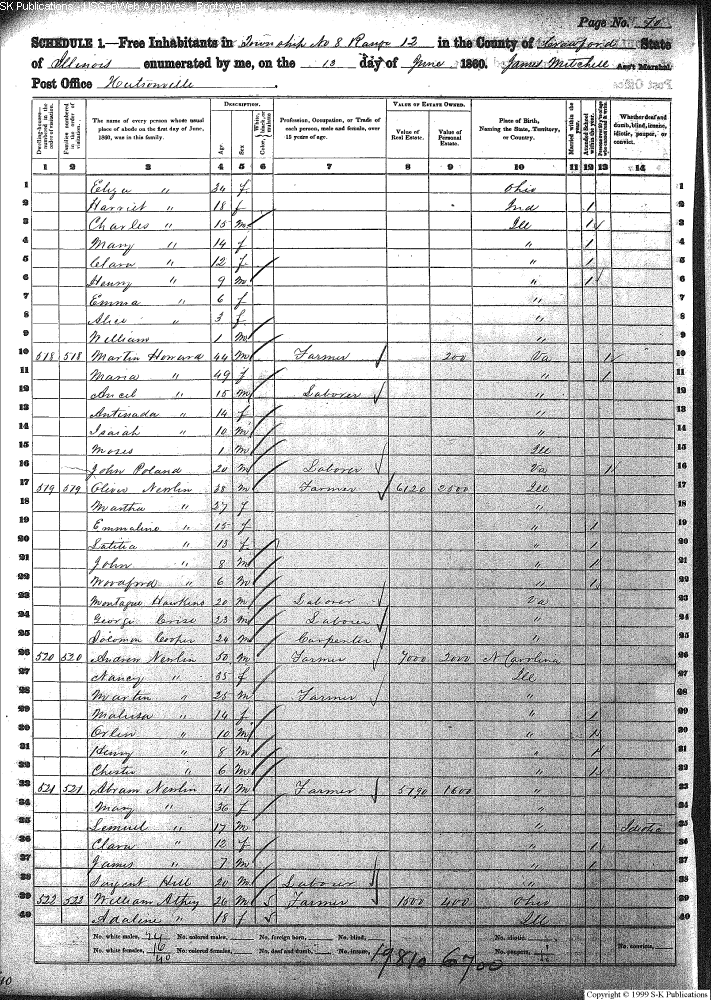 SK Publications - USGenWeb Archives - Rootsweb
Page No. 70
SCHEDULE 1.—Free Inhabitants in Township No 8 Range 12 in the County of Crawford State
of Illinois enumerated by me, on the 13 day of June 1860. James Mitchell Ass't Marshal.
Post Office Hutsonville
DESCRIPTION. VALUE OF ESTATE OWNED.
Dwelling-houses—numbered in the order of visitation. Families numbered in the order of visitation. The name of every person whose usual place of abode on the first day of June, 1860, was in this family. Age. Sex. Color, White, black, or mulatto. Profession, Occupation, or Trade of each person, male and female, over 15 years of age. Value of Real Estate. Value of Personal Estate. Place of Birth, Naming the State, Territory, or Country. Married within the year. Attended School within the year. Whether deaf and dumb, blind, insane, idiotic, pauper, or convict.
1 2 3 4 5 6 7 8 9 10 11 12 13 14
1 Eliza " 34 f Ohio 1
2 Harriet " 18 f Ind 1 2
3 Charles " 15 m Ill 1 3
4 Mary " 14 f " 1 4
5 Clara " 12 f " 1 5
6 Henry " 9 m " 1 6
7 Emma " 6 f " 7
8 Alice " 3 f " 8
9 William 1 m " 9
10 518 518 Martin Howard 44 m Farmer 200 Va 1 10
11 Maria " 49 f " 1 11
12 Ancil " 15 m Laborer " 12
13 " 14 f " 13
14 Isaiah " 10 m " 14
15 Moses 1 m Ill 15
16 John Poland 20 m Laborer Va 1 16
17 519 519 Oliver Newlin 38 m Farmer 6120 2500 Ill 17
18 Martha " 37 f " 18
19 Emmaline " 15 f " 1 19
20 Latitia " 13 f " 1 20
21 John " 8 m " 1 21
22 Woodford " 6 m " 1 22
23 Montague Hawkins 20 m Laborer Va 23
24 George Crise 23 m Laborer " 24
25 Solomon Cooper 24 m Carpenter " 25
26 520 520 Andrew Newlin 50 m Farmer 7000 2000 N Carolina 26
27 Nancy " 35 f Ill 27
28 Martin " 25 m Farmer " 28
29 Malissa " 14 f " 1 29
30 Orlin " 10 m " 1 30
31 Henry " 8 m " 1 31
32 Chester " 6 m " 1 32
33 521 521 Abram Newlin 41 m Farmer 5790 1600 " 33
34 Mary " 36 f " 34
35 Lemuel " 17 m " Idiotic 35
36 Clara " 12 f " 1 36
37 James " 7 m " 1 37
38 Sargent Hill 20 m Laborer " 38
39 522 522 William Athey 26 m Farmer 1500 400 Ohio 39
40 Adaline " 18 f Ill 40
No. white males, 24 No. colored males, No. foreign born, No. blind, No. idiotic,
No. white females, 16 No. colored females, No. deaf and dumb, No. insane, No. paupers, No. convicts,
40
19810 6700
Copyright © 1999 S-K Publications